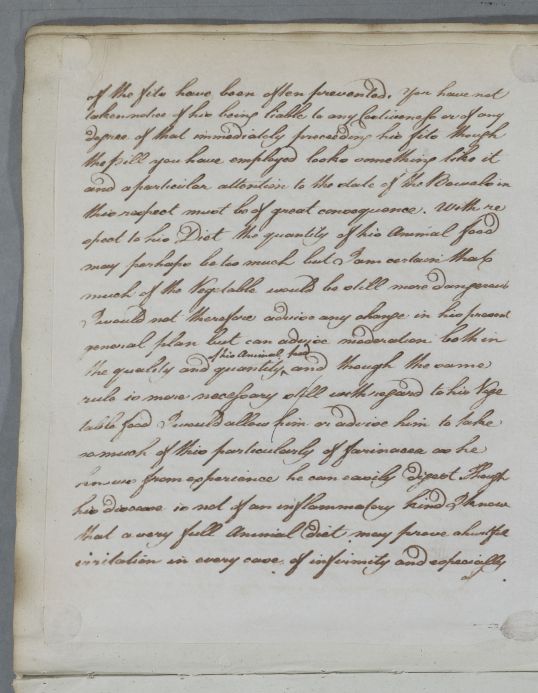 of the fits have been often prevented. You have not
taken notice of his being liable to any Costiveness or of any
degree of that immediately preceeding his fits though
the pill you have employed looks something like it
and a particular attention to the state of the Bowels in
this respect must be of great consequence. With re
spect to his Diet the quantity of his Animal food
may perhaps be too much but I am certain that
much of the Vegetable would be still more dangerous
I would not therefore advise any change in his present
general plan but can advise moderation both in
of his Animal food
the quality and quantity, and though the same
rule is more necessary still with regard to his Vege
table food I would allow him or advise him to take
so much of this particularly of farinacea as he
knows from experience he can easily digest Though
his disease is not of an inflammatory kind I know
that a very full Animal Diet may prove a hurtful
irritation in every case of infirmity and especially